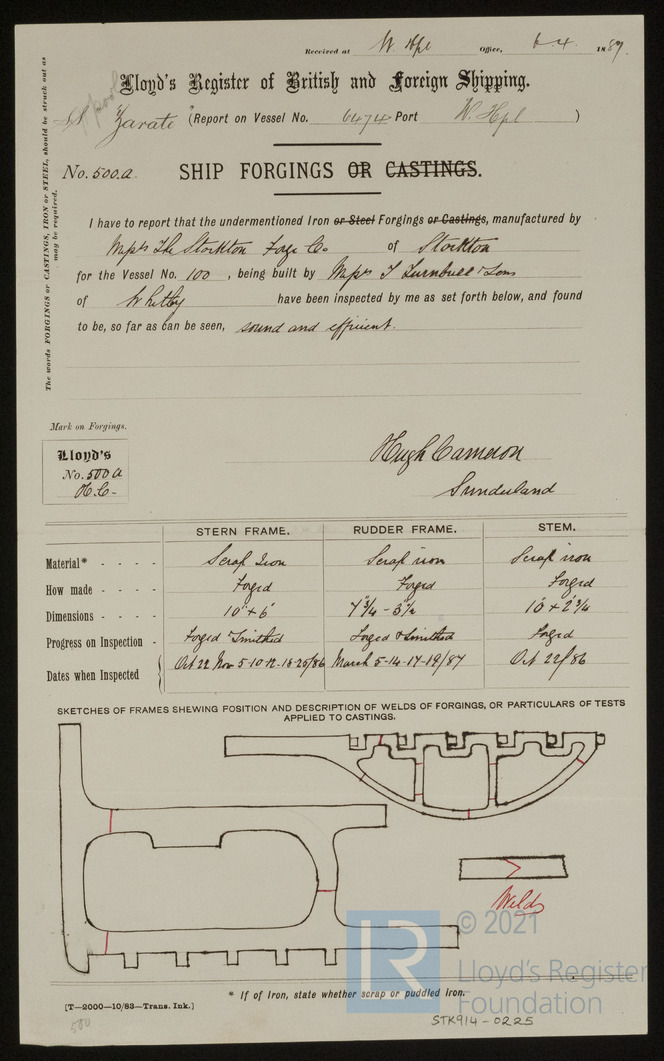 Received at W. Hpl Office, 6-4. 1887.
Lloyd's Register of British and Foreign Shipping.
SS "Zarate" (Report on Vessel No. 6474 Port W. Hpl )
No. 500.a. SHIP FORGINGS OR CASTINGS.
The words FORGINGS or CASTINGS, IRON or STEEL, should be struck out as may be required.
I have to report that the undermentioned Iron or Steel Forgings or Castings, manufactured by
Messrs The Stockton Forge Co. of Stockton
for the Vessel No. 100, being built by Messrs T Turnbull & Sons
of Whitby have been inspected by me as set forth below, and found
to be, so far as can be seen, sound and efficient.
Mark on Forgings.
Lloyd's
No. 500 a
H.C-
Hugh Cameron
Sunderland
STERN FRAME. RUDDER FRAME. STEM.
Material* - - - - Scrap Iron Scrap iron Scrap iron
How made - - - - Forged Forged Forged
Dimensions - - - - 10" + 6" 7 3/4 - 3 1/2 10 + 2 3/4
Progress on Inspection - Forged & Smithed Forged & Smithed Forged
Dates when Inspected Oct 22 Nov 5-10-12-18-25/86 March 5-14-17-19/87 Oct 22/86
SKETCHES OF FRAMES SHEWING POSITION AND DESCRIPTION OF WELDS OF FORGINGS, OR PARTICULARS OF TESTS
APPLIED TO CASTINGS.
Welds
LR
© 2021
Lloyd's Register
Foundation
* If of Iron, state whether scrap or puddled iron.
[T—2000—10/83—Trans. Ink.]
500
STK914-0225